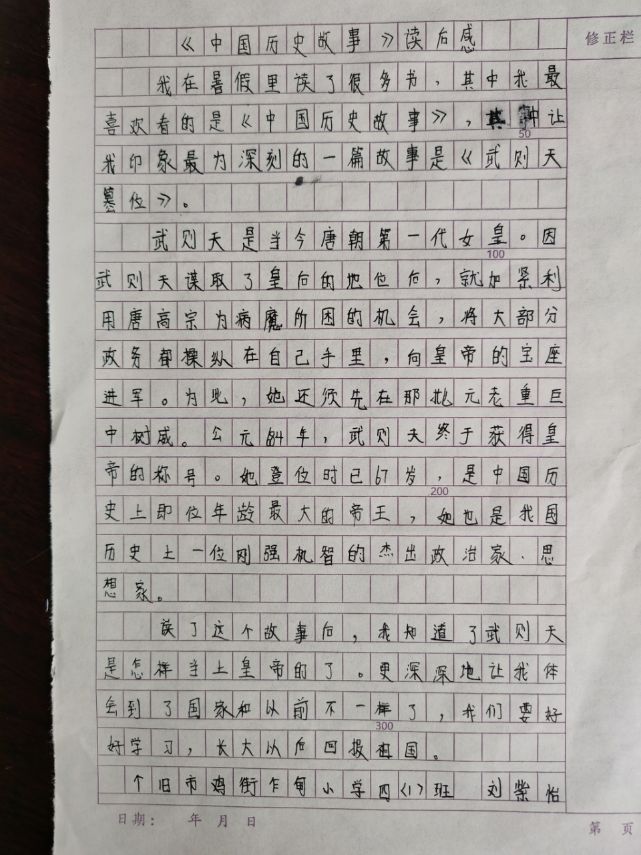 《中国历史故事》读后感
修正栏
我在暑假里读了很多书，其中我最
喜欢看的是《中国历史故事》，其中让
50
我印象最为深刻的一篇故事是《武则天
篡位》。
武则天是当今唐朝第一代女皇。因
100
武则天谋取了皇后的地位后，就加紧利
用唐高宗为病魔所困的机会，将大部分
政务都操纵在自己手里，向皇帝的宝座
进军。为此，她还须先在那批元老重臣
中树威。公元684年，武则天终于获得皇
帝的称号。她登位时已67岁，是中国历
200
史上即位年龄最大的帝王，她也是我国
历史上一位刚强机智的杰出政治家、思
想家。
读了这个故事后，我知道了武则天
是怎样当上皇帝的了。更深深地让我体
会到了国家和以前不一样了，我们要好
300
好学习，长大以后回报祖国。
个旧市鸡街乍甸小学四（1）班 刘紫怡
日期： 年 月 日
第 页